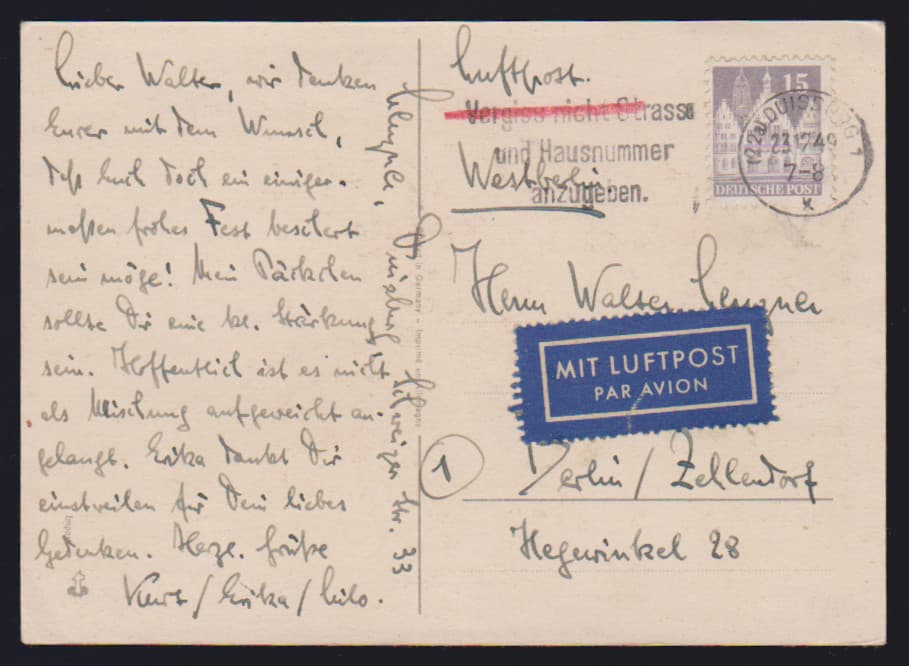 Lieber Walter, wir denken
Eurer mit dem Wunsch,
daß Euch doch ein einiger-
maßen frohes Fest beschert
sein möge! Mein Päckchen
sollte Dir eine kl. Stärkung
sein. Hoffentlich ist es nicht
als Mischung aufgeweicht an-
gelangt. Erika dankt Dir
einstweilen für Dein liebes
Gedenken. Herzl. Grüße
Kurt / Erika /
Duisburg Schweizer Str. 33
in Germany - Imprimé en
Luftpost.
Vergiss nicht Strasse
und Hausnummer
anzugeben.
Westberlin.
15
DEUTSCHE POST
(22a) DUISBURG 1
23.12.49
7-8
x
Herrn Walter
MIT LUFTPOST
PAR AVION
1
Berlin / Zehlendorf
Hegewinkel 28